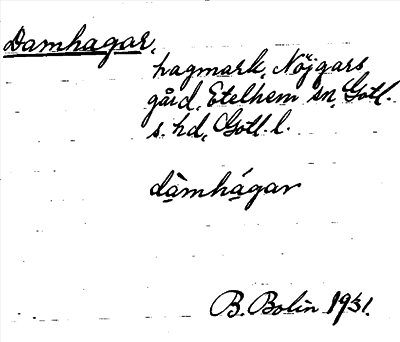 Damhagar,
hagmark, Nöjgars
gård, Etelhem sn, Gotl.
s. hd, Gotl. l.
dàmhágar
B. Bolin 1931.